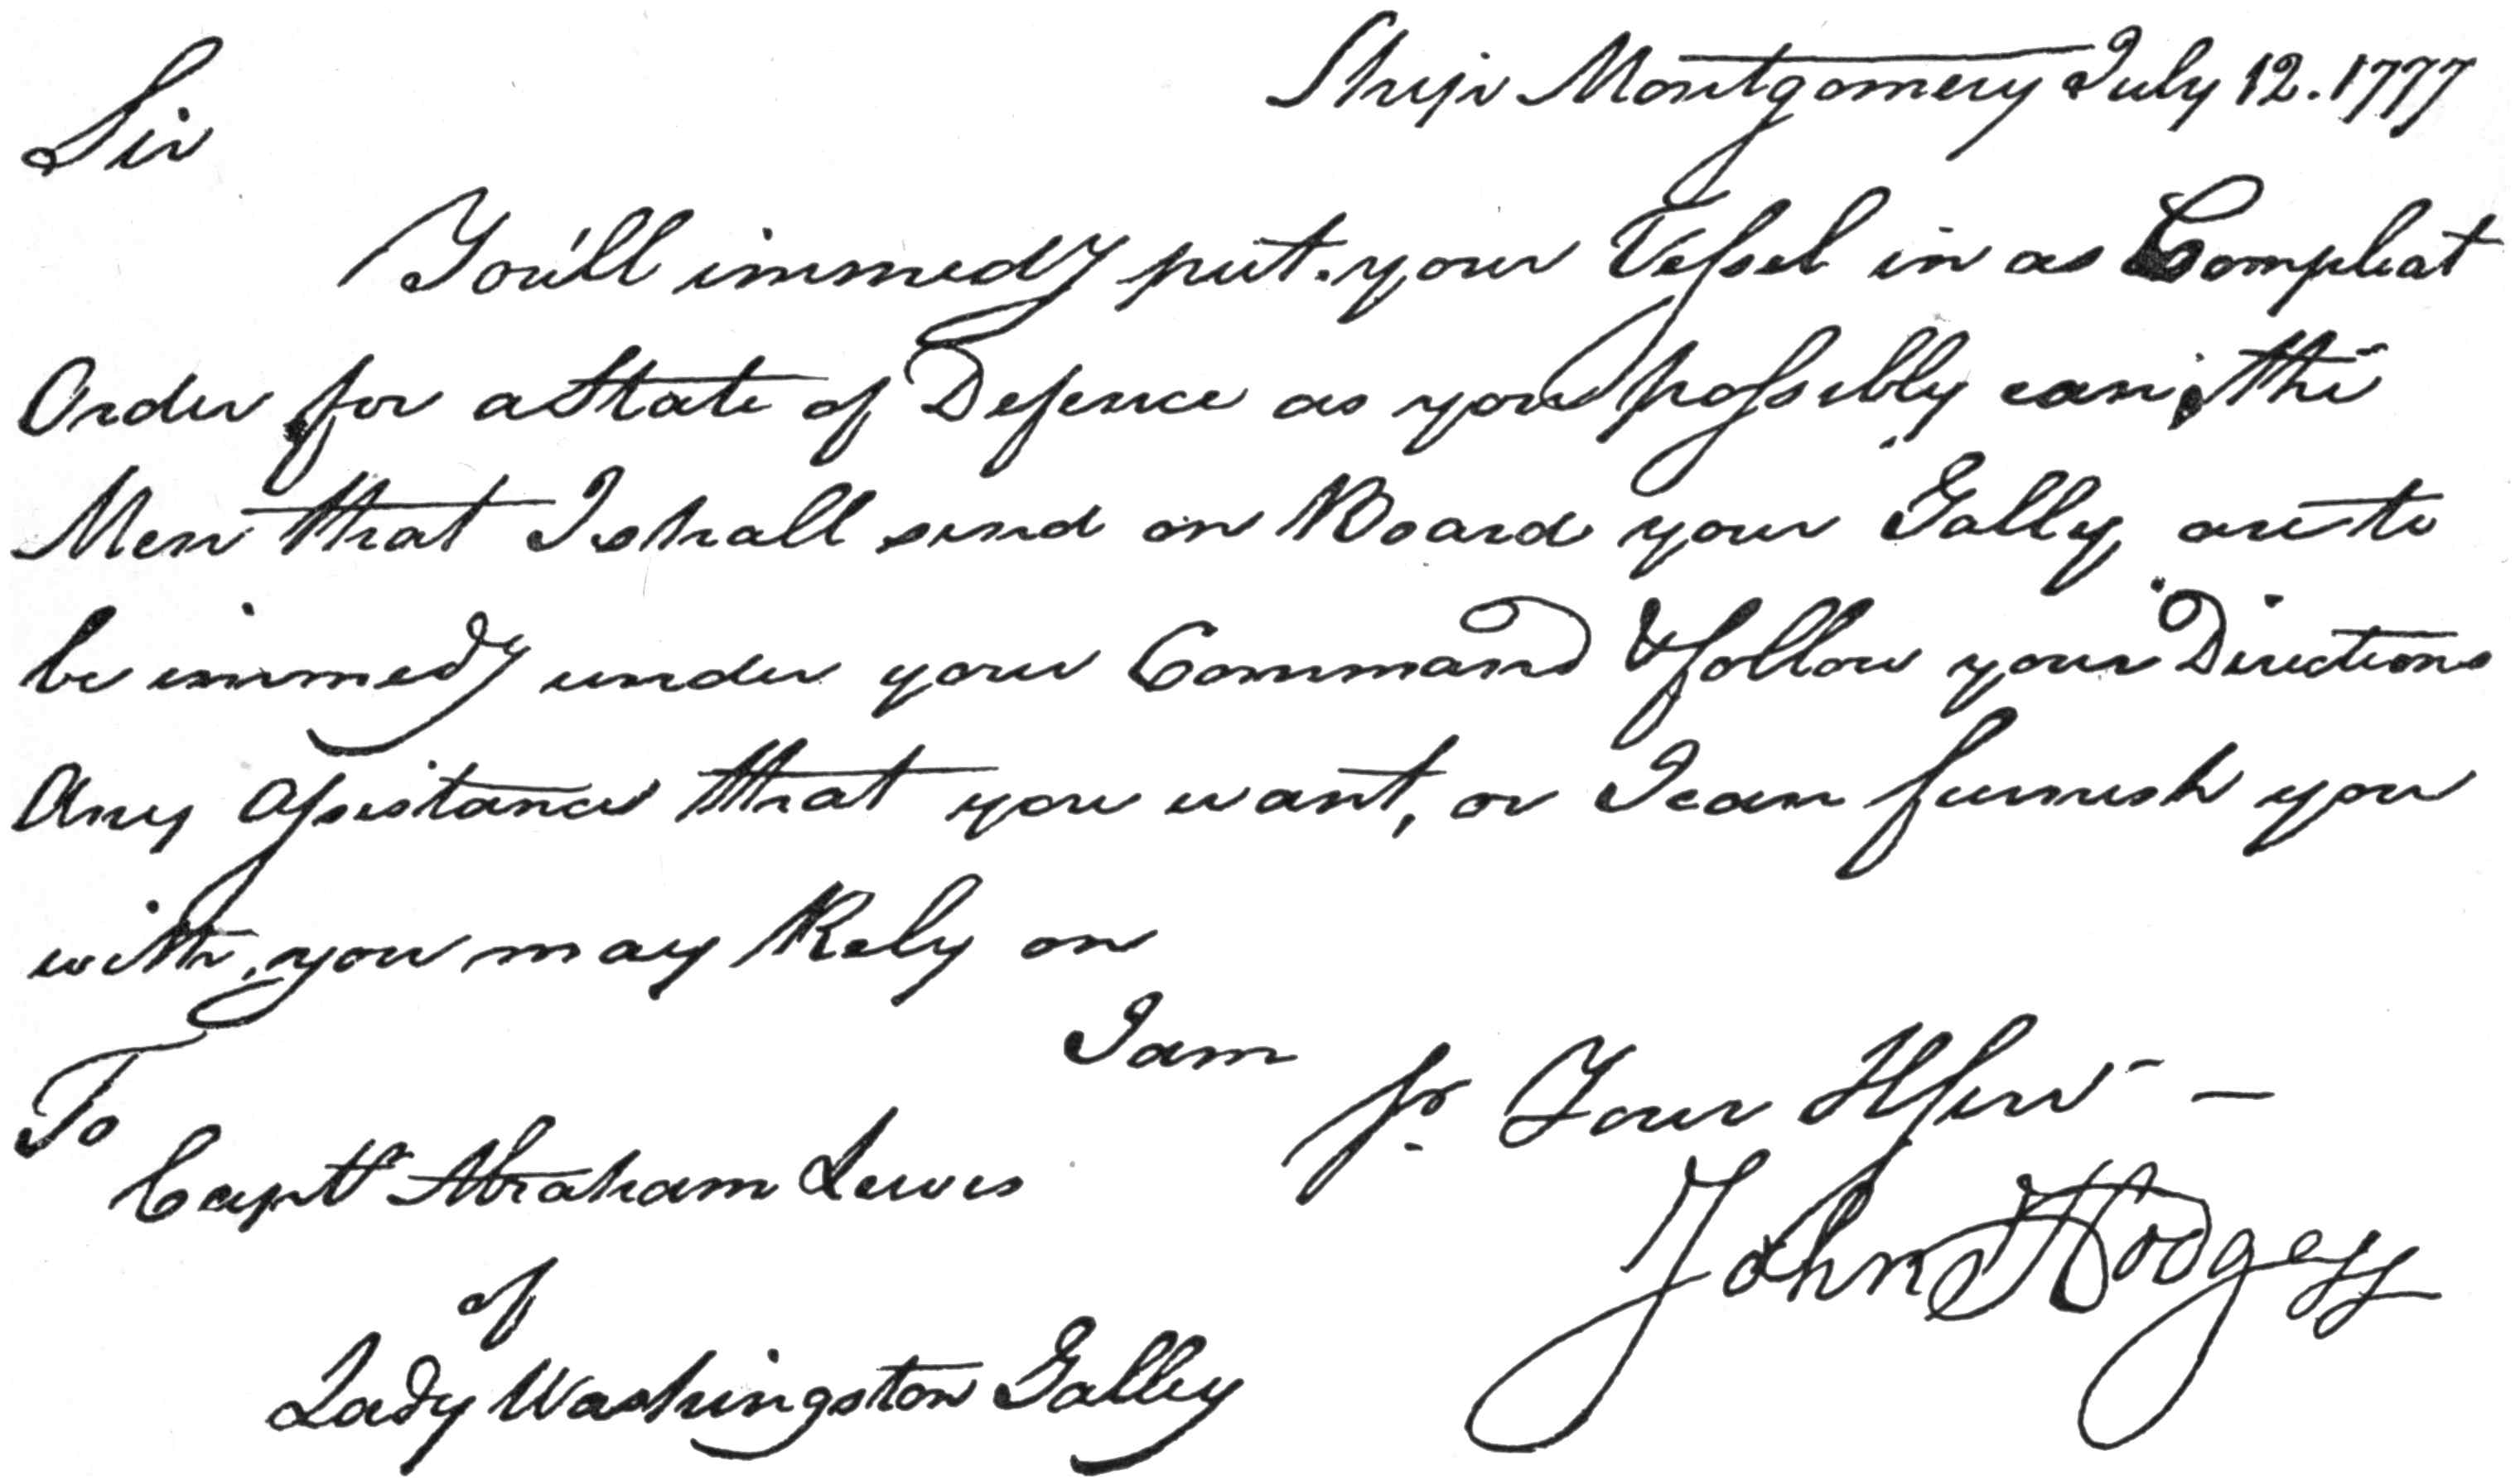 Ship Montgomery July 12. 1777
Sir
You'll immedy put your Vessel in as Compleat
Order for a State of Defence as you possibly can, the
Men that I shall send on Board your Gally are to
be immedy under your Command & follow your Directions
Any Assistance that you want, or I can furnish you
with, you may Rely on
I am
Sr. Your HServt —
John Hodge
To
Captn Abraham Lewis
of
Lady Washington Galley